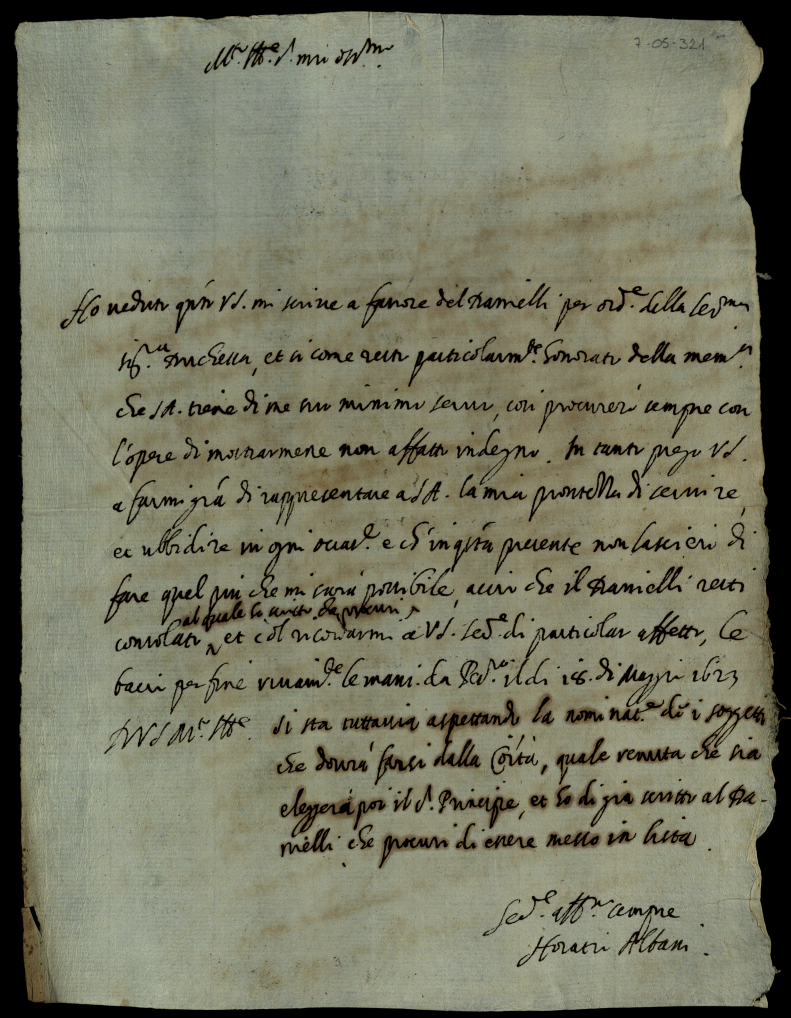 7-05-321
M.to Ill.e S.r mio oss.mo
Ho veduto q.to V.S. mi scrive a favore del Ramelli per ord.e della Ser.ma
Sig.ra Duchessa, et si come resto particolarm.te honorato della mem.a
che S.A. tiene di me suo minimo servo, così procurerò sempre con
l'opere di mostrarmene non affatto indegno. In tanto prego V.S.
a farmi gr.a di rappresentare a S.A. la mia prontezza di servire,
et ubbidire in ogni occas.e e ch' in q.sta presente non lascierò di
fare quel più che mi sarà possibile, acciò che il Ramelli resti
al quale ho scritto che procuri
consolato, et col ricordarmi a V.S. Ser.e di particolar affetto, le
bacio per fine vivam.te le mani. da Pes.o il dì 18. di Maggio 1623
D V S M.to Ill.e
Si sta tuttavia aspettando la nominat.e de i soggetti
che dovrà farsi dalla Co.ità, quale venuta che sia
eleggerà poi il S. Principe, et ho di già scritto al Ra-
melli che procuri di essere messo in lista.
Ser.e aff.mo sempre
Horatio Albani.